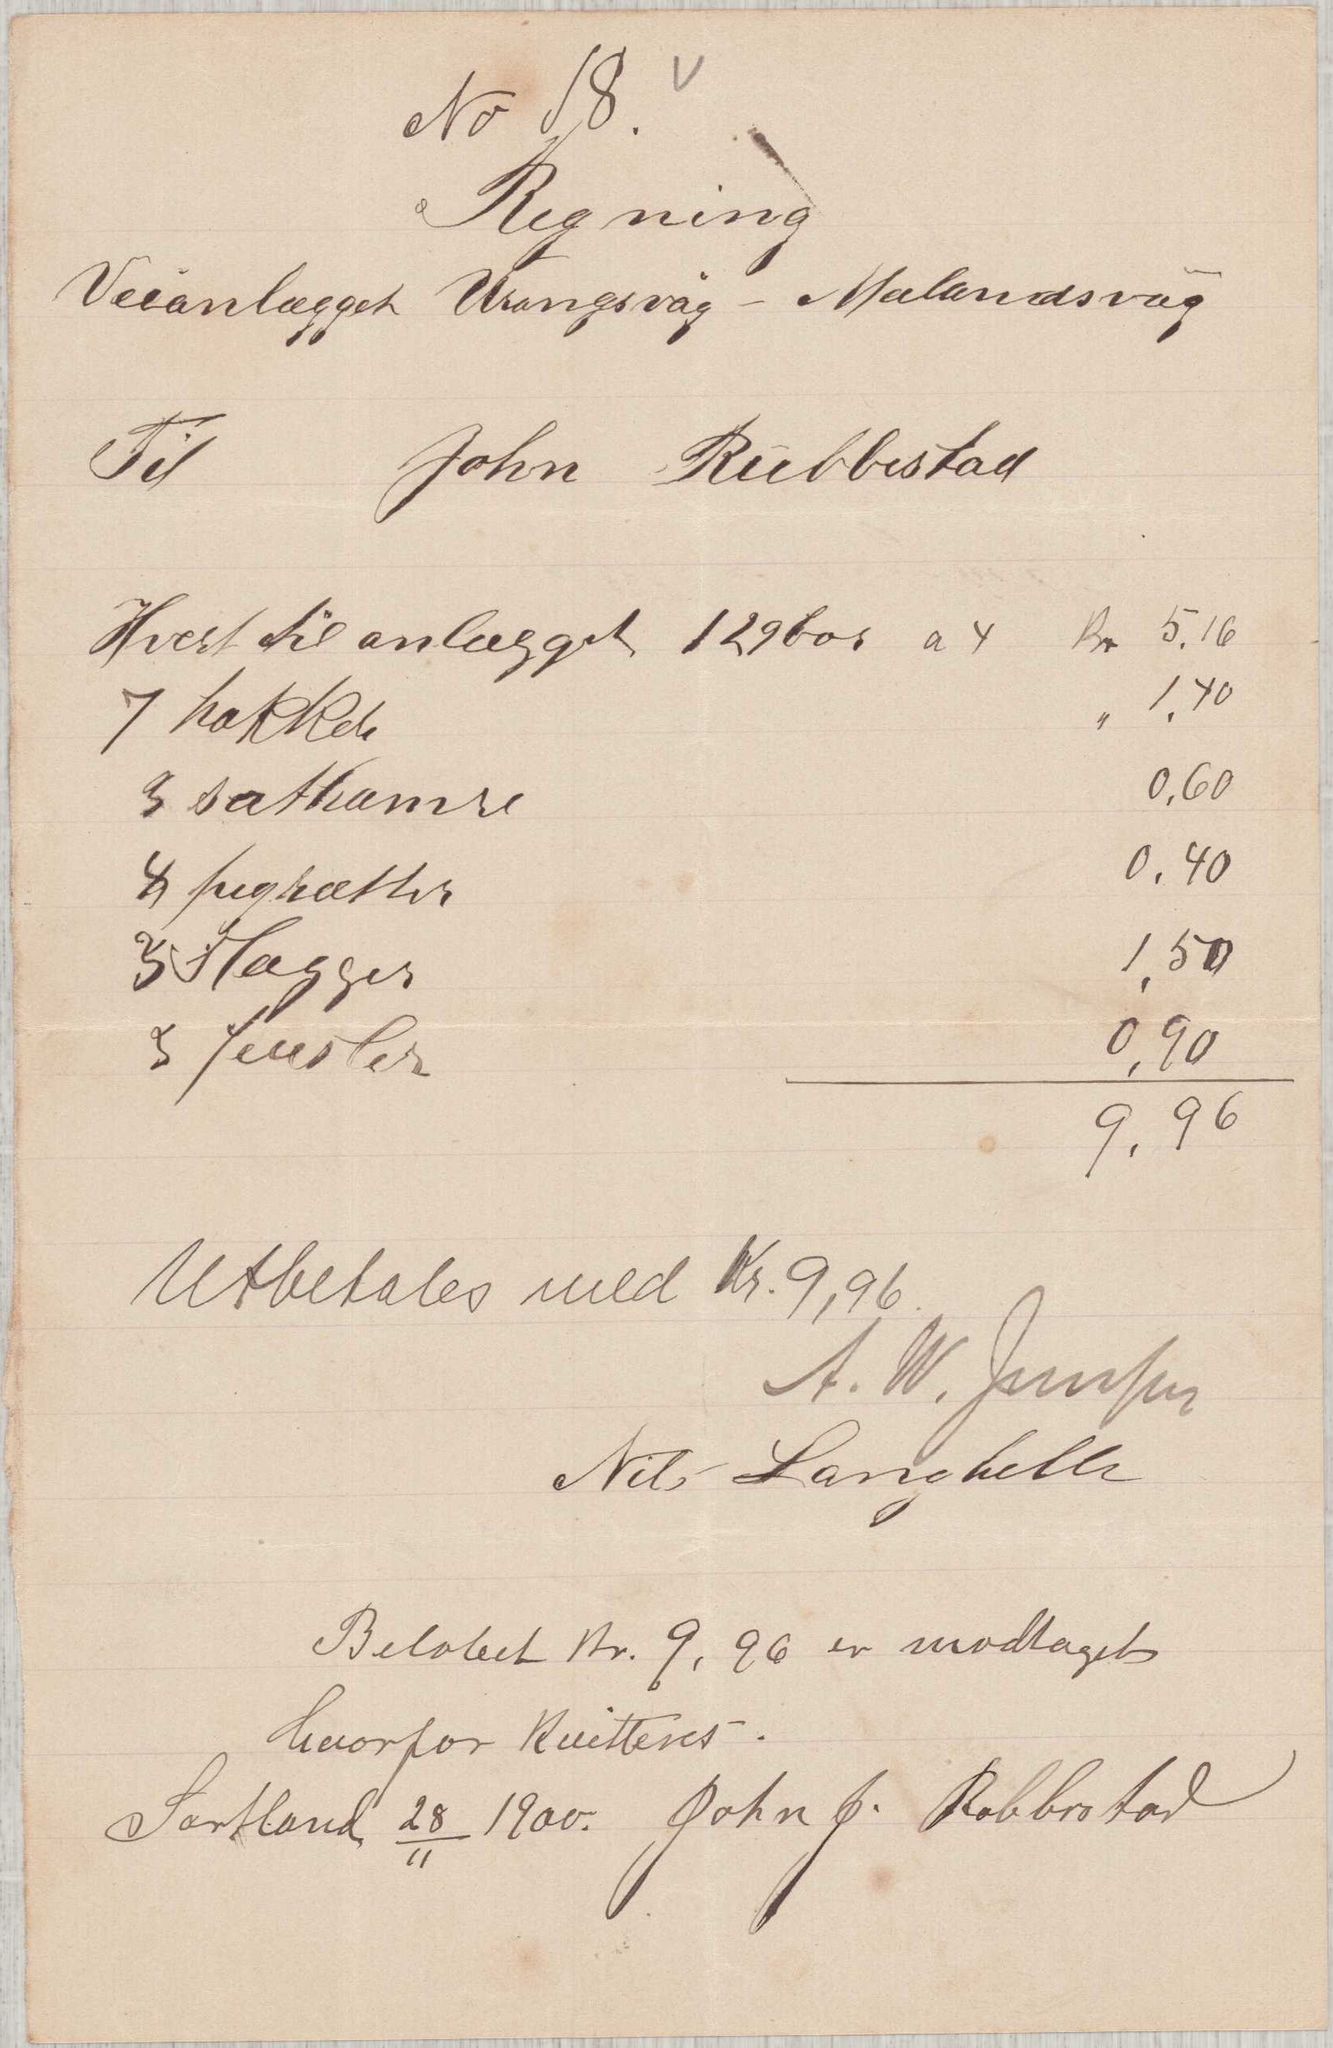 No 18. V
Regning
Veianlægget Urangsvåg - Mælandsvåg
Til John Rubbestad
Hvest til anlægget 129 bor a 4 Kr 5.16
7 hakker " 1,40
3 sathamre 0,60
4 0,40
3 slægger 1,50
3 feusler 0,90
9,96
Utbetales med Kr. 9,96.
A. W.
Nils Langhelle
Belobet Kr. 9,96 er modtaget
hvorfor kvitteres.
Sortland 28/11 1900. John J. Robbestad